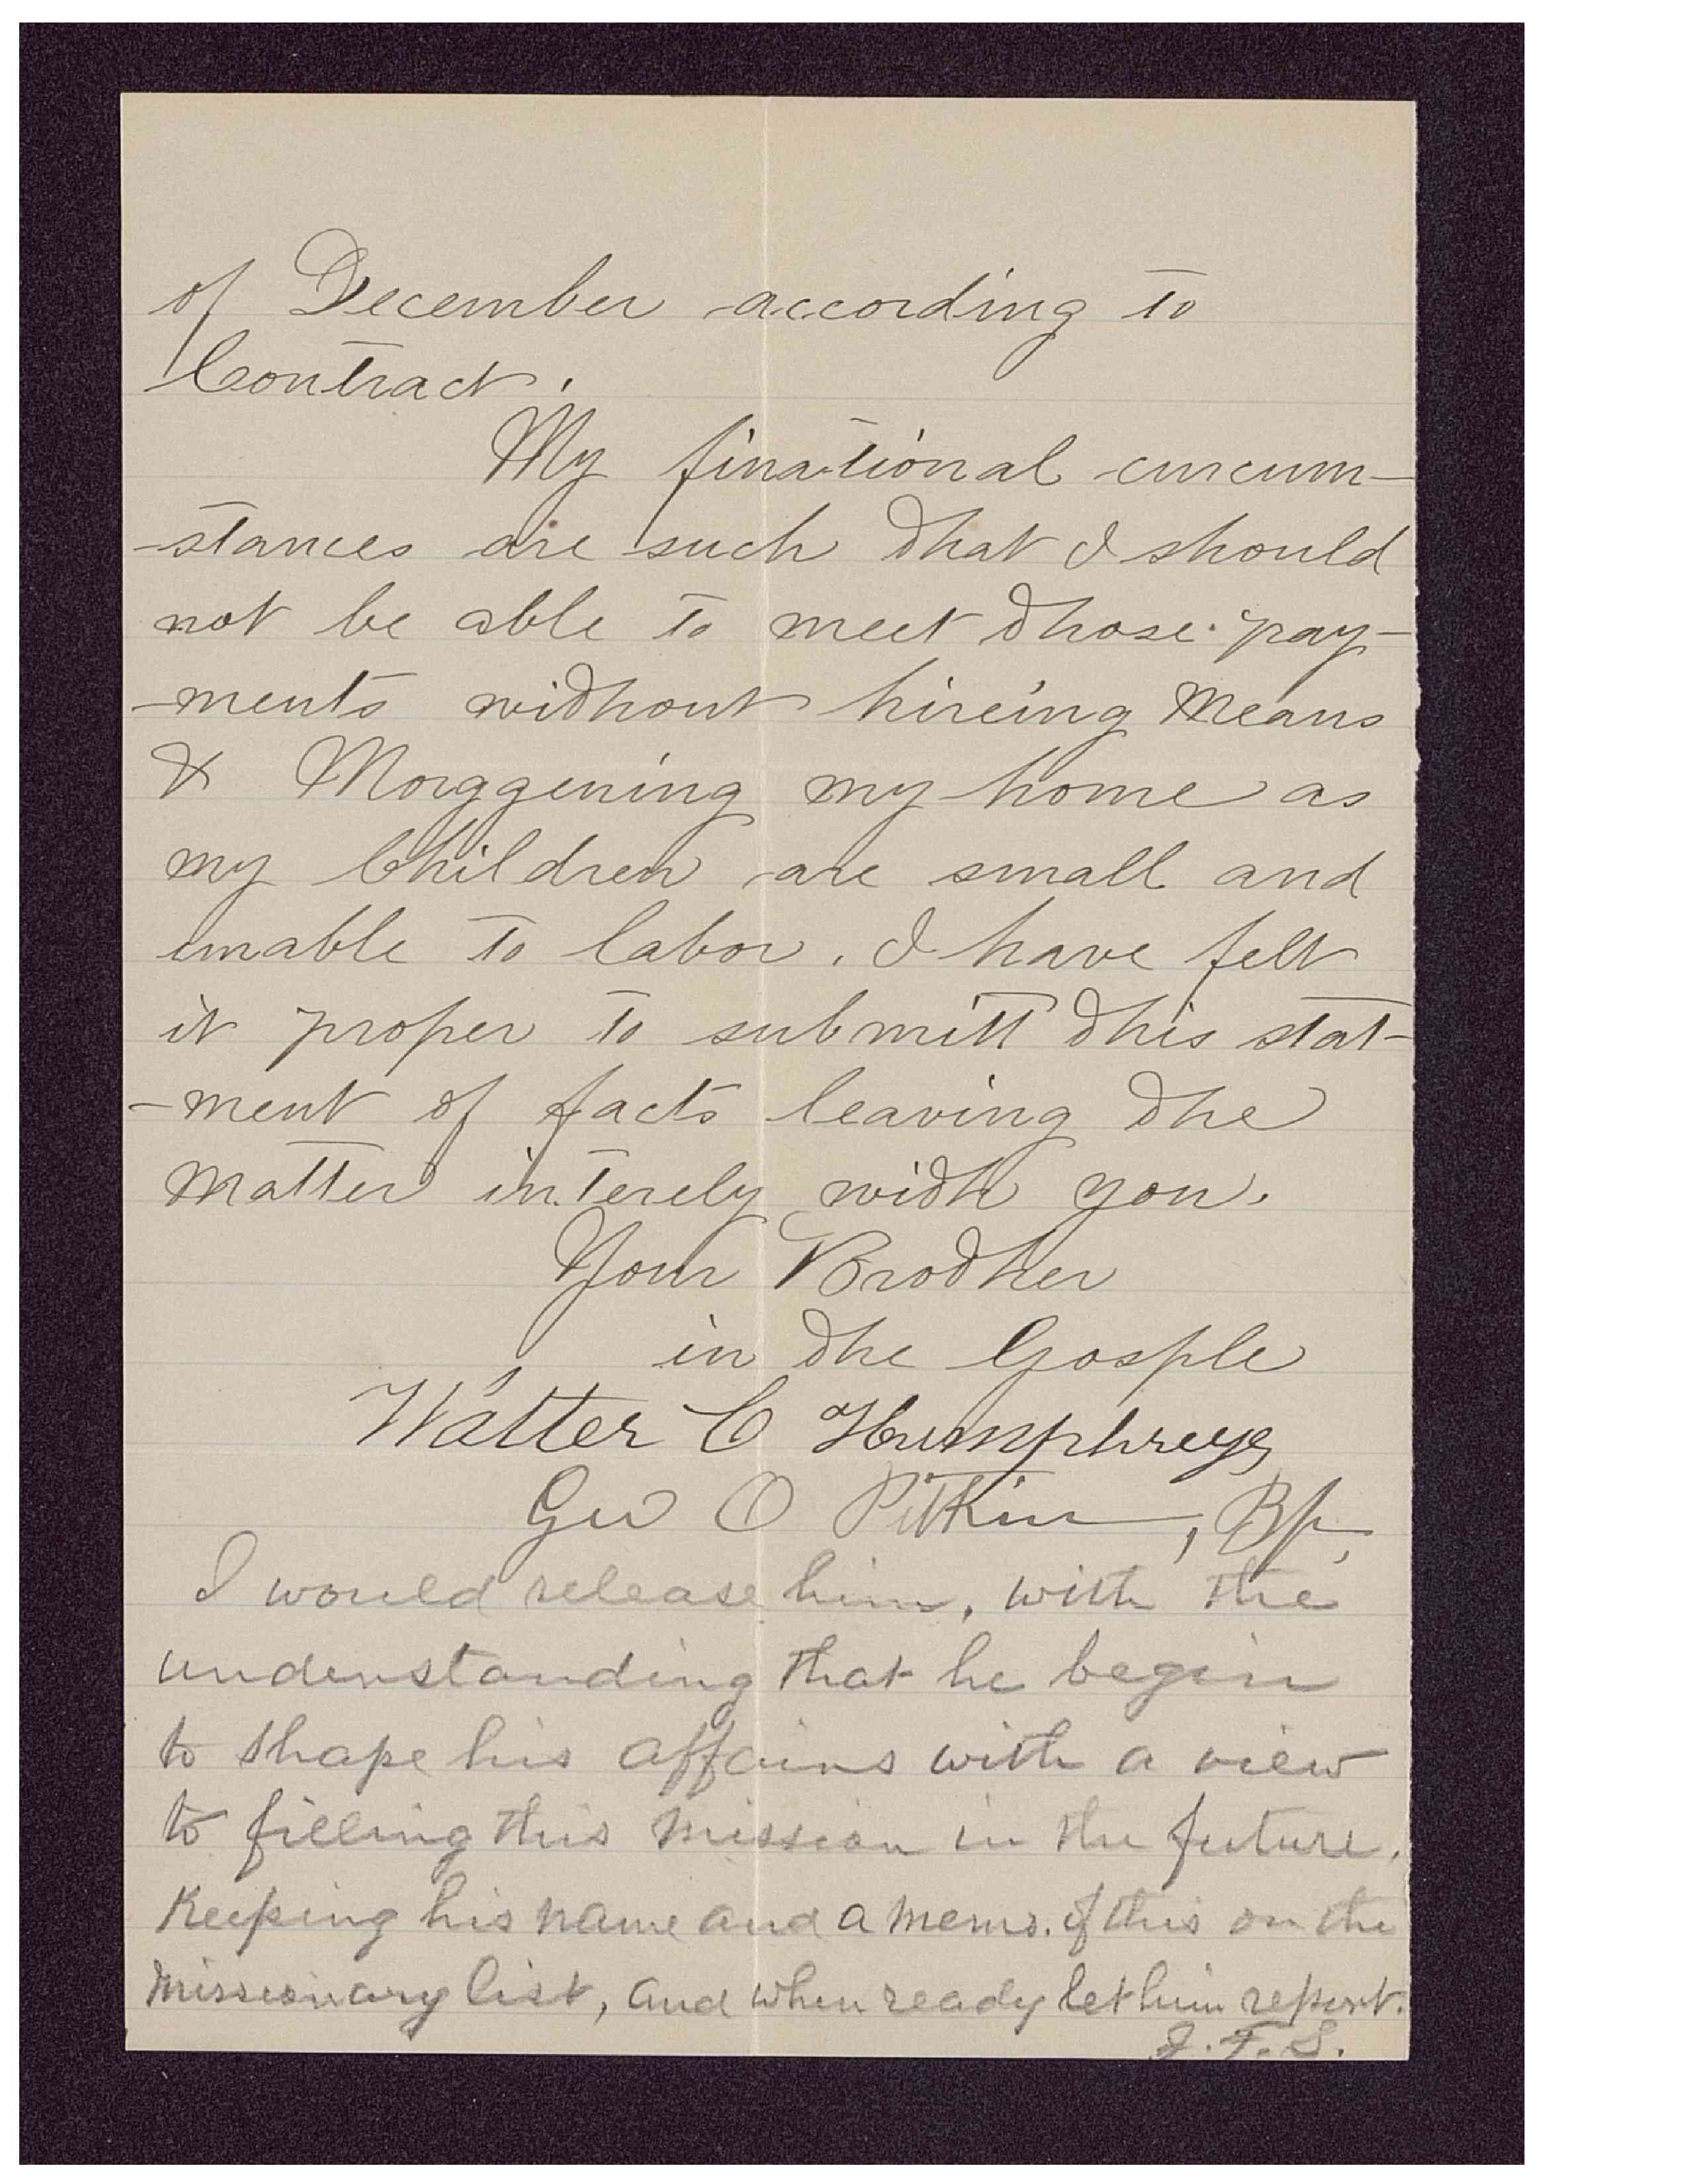 of December according to
Contract.
My finational circum-
-stances are such that I should
not be able to meet those pay-
-ments without hireing Means
& Morggening my home as
my Children are small and
unable to labor. I have felt
it proper to submitt this stat-
-ment of facts leaving the
Matter interely with you.
Your Brother
in the Gosple
Walter C Humphreys
Geo O Pitkin, Bp,
I would release him, with the
understanding that he begin
to shape his affairs with a view
to filling this mission in the future.
Keeping his name and a memo. of this on the
missionary list, and when ready let him report.
J. F. S.